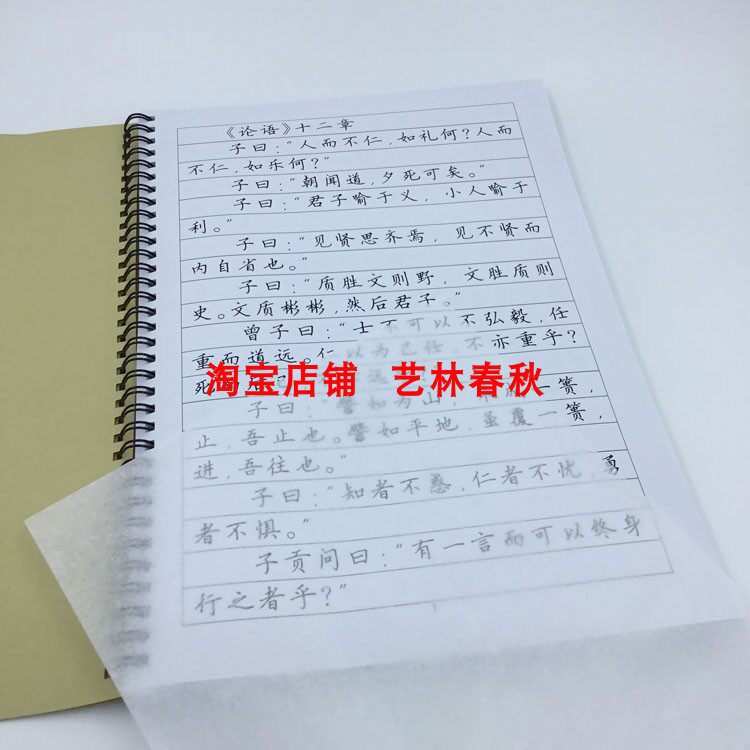 《论语》十二章
子曰：“人而不仁，如礼何？人而
不仁，如乐何？”
子曰：“朝闻道，夕死可矣。”
子曰：“君子喻于义，小人喻于
利。”
子曰：“见贤思齐焉，见不贤而
内自省也。”
子曰：“质胜文则野，文胜质则
史。文质彬彬，然后君子。”
曾子曰：“士不可以不弘毅，任
重而道远。仁以为己任，不亦重乎？
死
淘宝店铺 艺林春秋
子曰：“譬如为山，一篑，
止，吾止也。譬如平地，虽覆一篑，
进，吾往也。”
子曰：“知者不惑，仁者不忧，勇
者不惧。”
子贡问曰：“有一言而可以终身
行之者乎？”